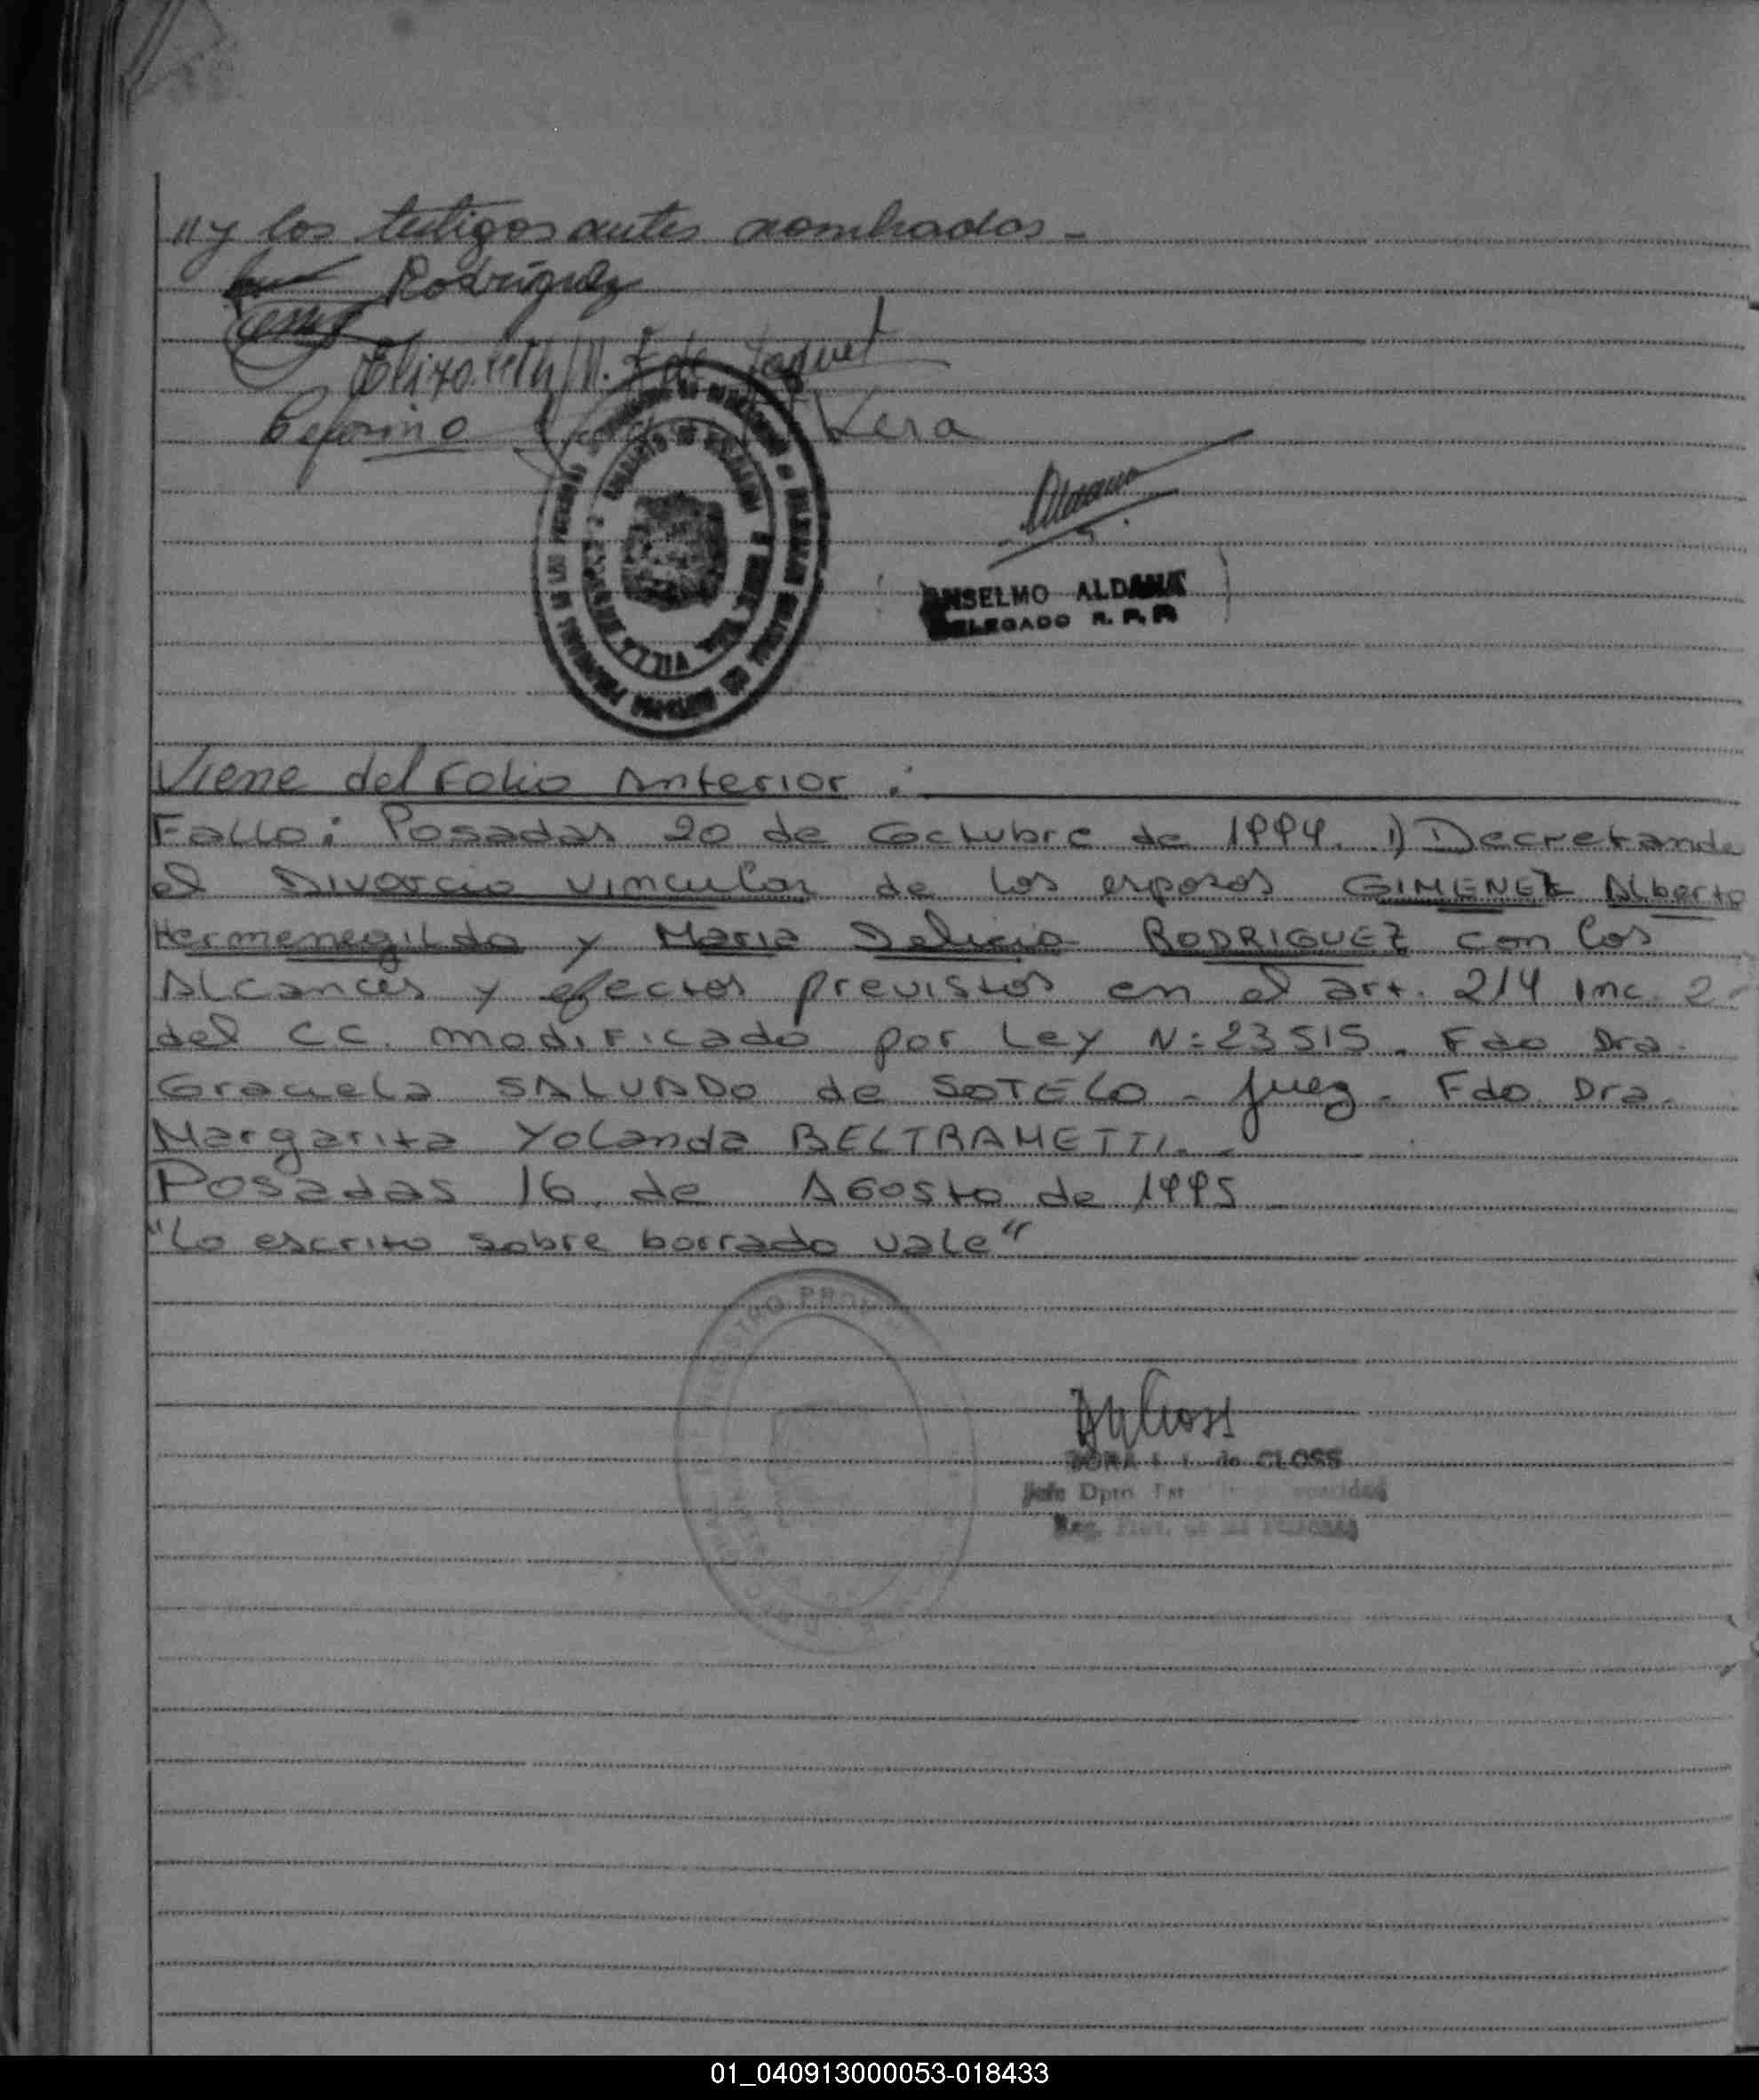 "y los testigos antes nombrados -
Rodríguez
Elizabeth M. F. de Jaquet
Ceferino Vera
ANSELMO ALDANA
DELEGADO R. P. P.
VILLA
Viene del Folio Anterior :
Fallo: Posadas 20 de Octubre de 1994. 1) Decretando
el Divorcio vincular de los esposos GIMENEZ Alberto
Hermenegildo y Maria Delicia RODRIGUEZ con los
Alcances y efectos previstos en el art. 214 Inc. 2-
del CC. modificado por Ley N: 23515. Fdo Dra.
Graciela SALVADO de SOTELO - Juez - Fdo. Dra.
Margarita Yolanda BELTRAMETTI. -
Posadas 16 de Agosto de 1995
"Lo escrito sobre borrado vale"
DORA de CLOSS
Jefe Dpto.
Reg.
01_040913000053-018433